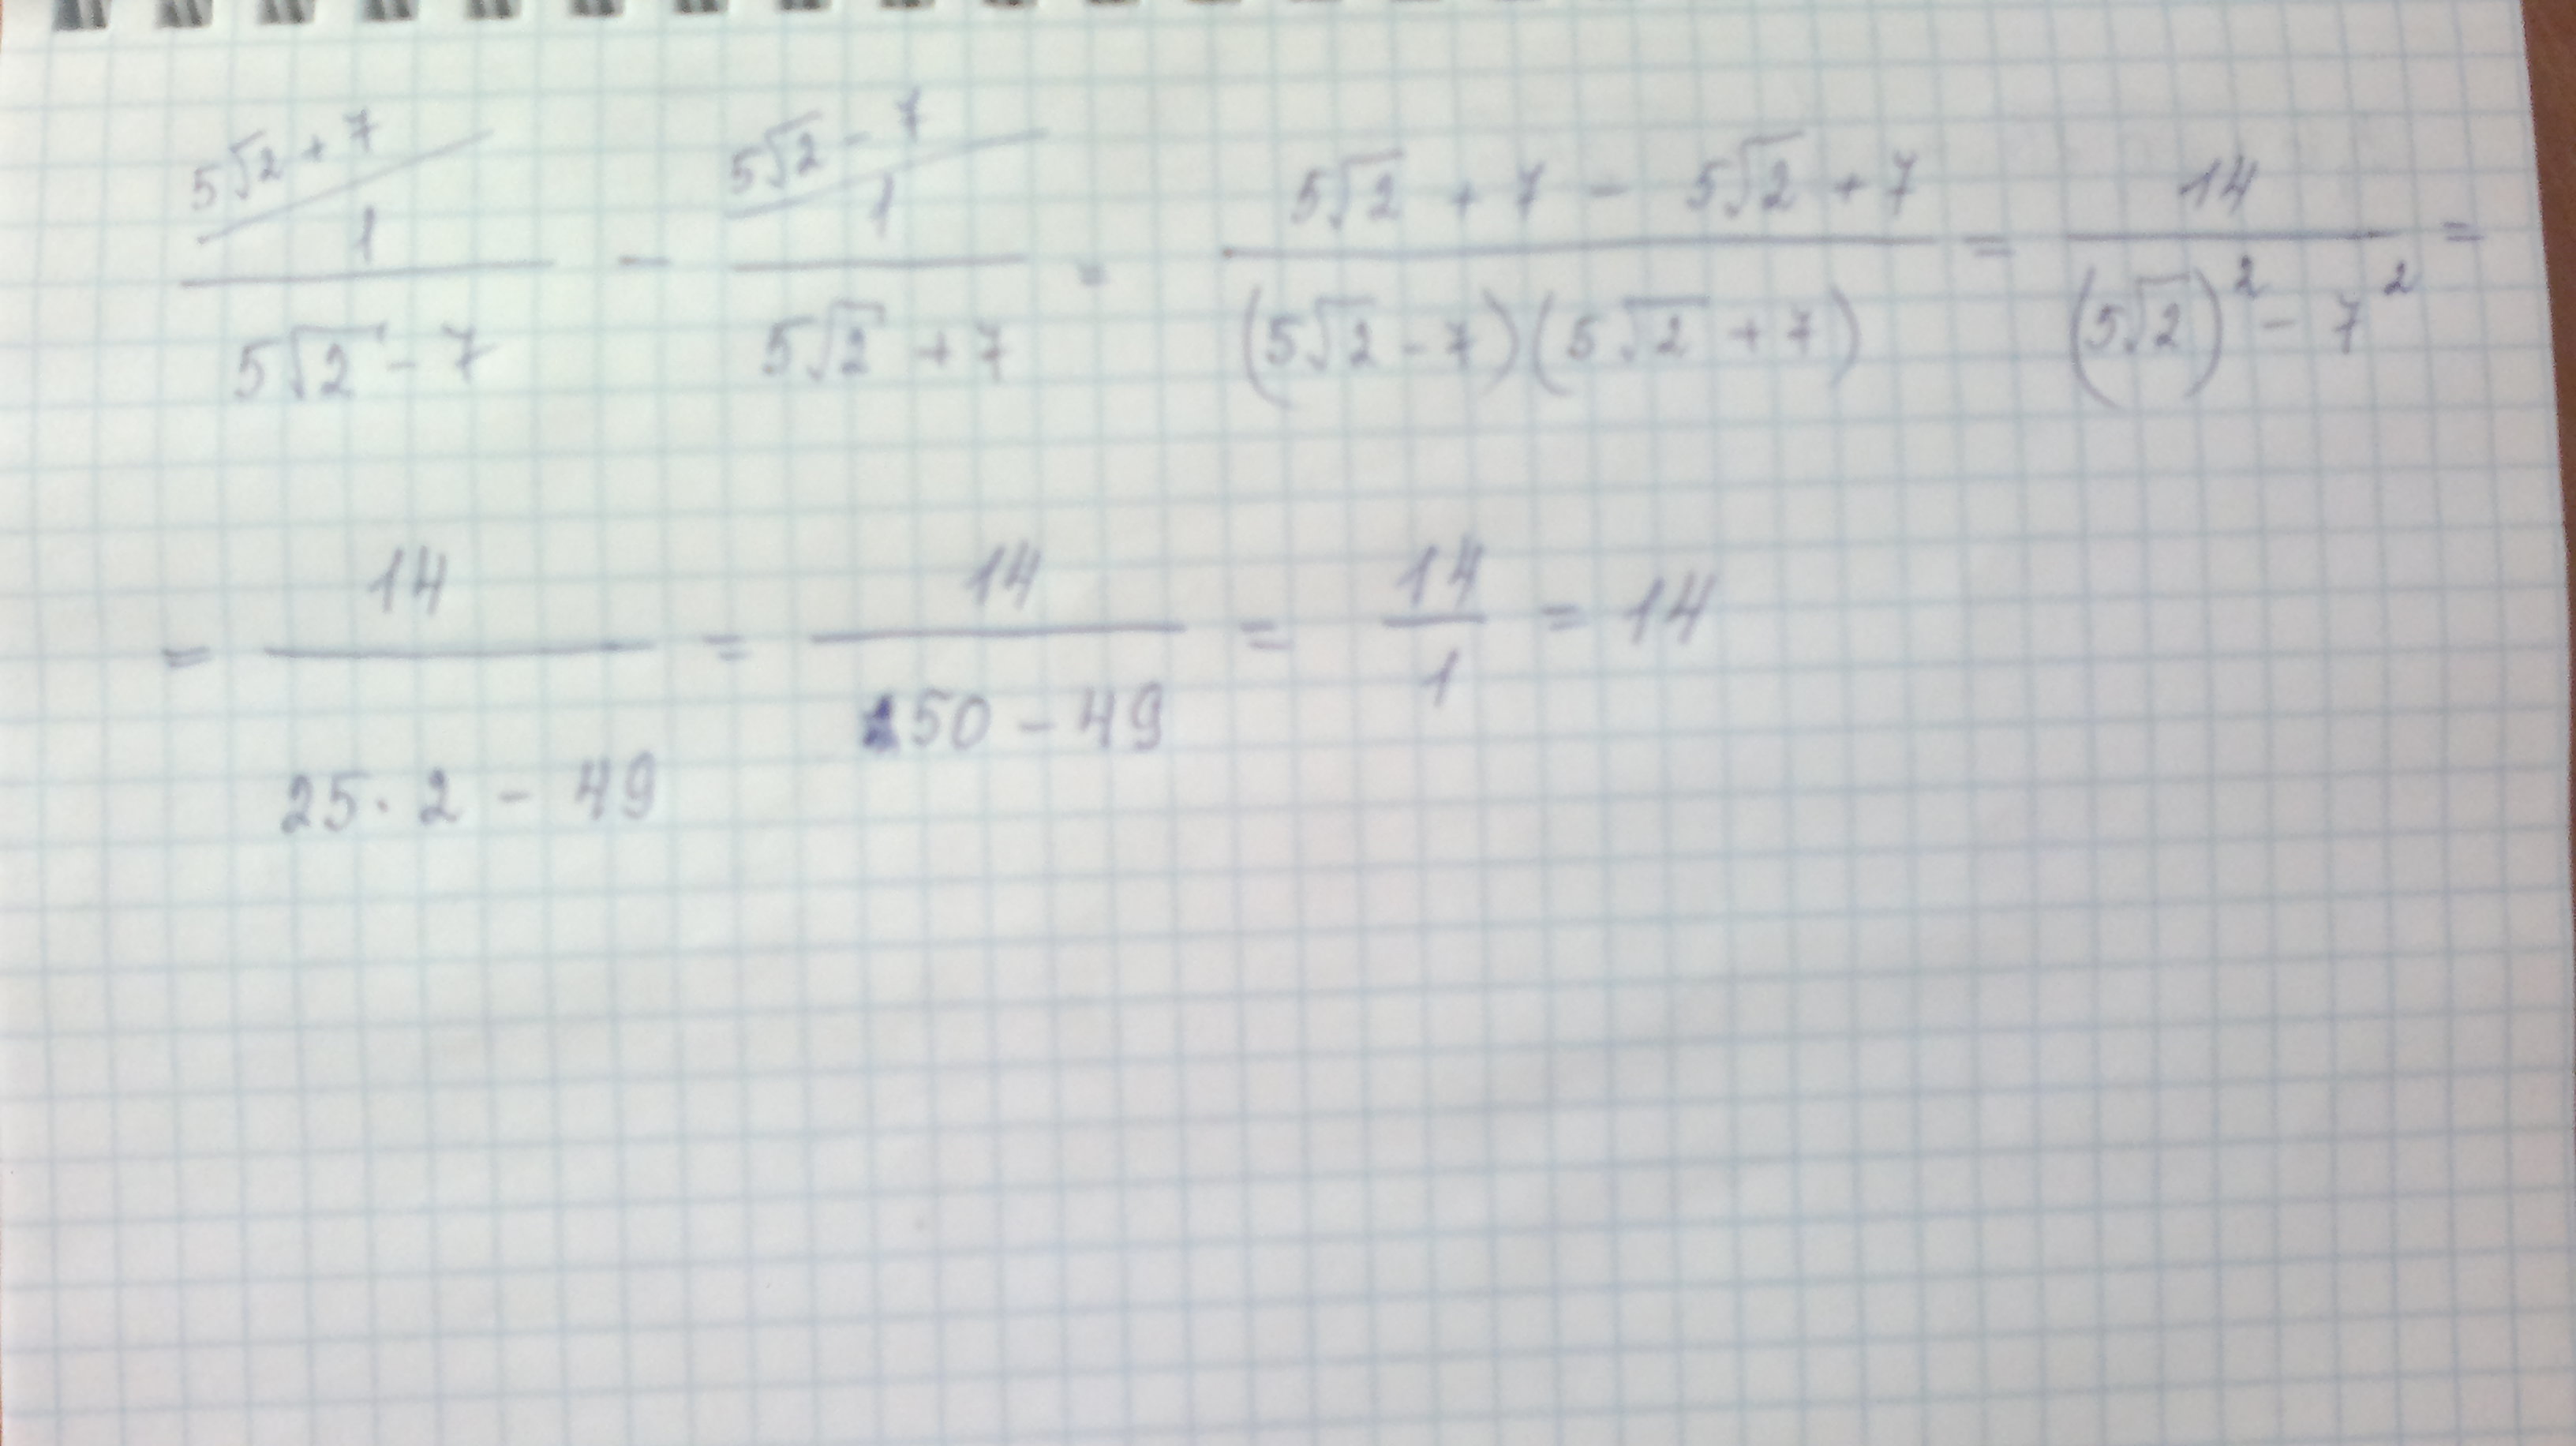 5√2 + 7 / 1 / 5√2 - 7 - 5√2 - 7 / 1 / 5√2 + 7 = 5√2 + 7 - 5√2 + 7 / (5√2 - 7)(5√2 + 7) = 14 / (5√2)² - 7² =
= 14 / 25 · 2 - 49 = 14 / 50 - 49 = 14 / 1 = 14